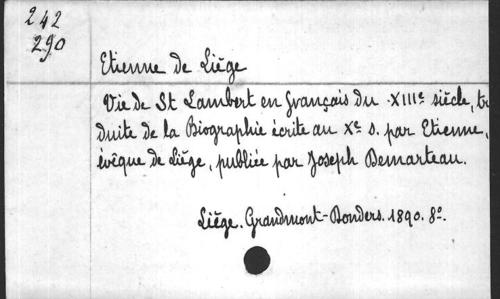 242
290
Etienne de Liége
Vie de St Lambert en français du XIIIe siècle, tra
duite de la Biographie écrite au Xe s. par Etienne,
évêque de Liége, publiée par Joseph Demarteau.
Liége. Grandmont-Donders. 1890. 8o.